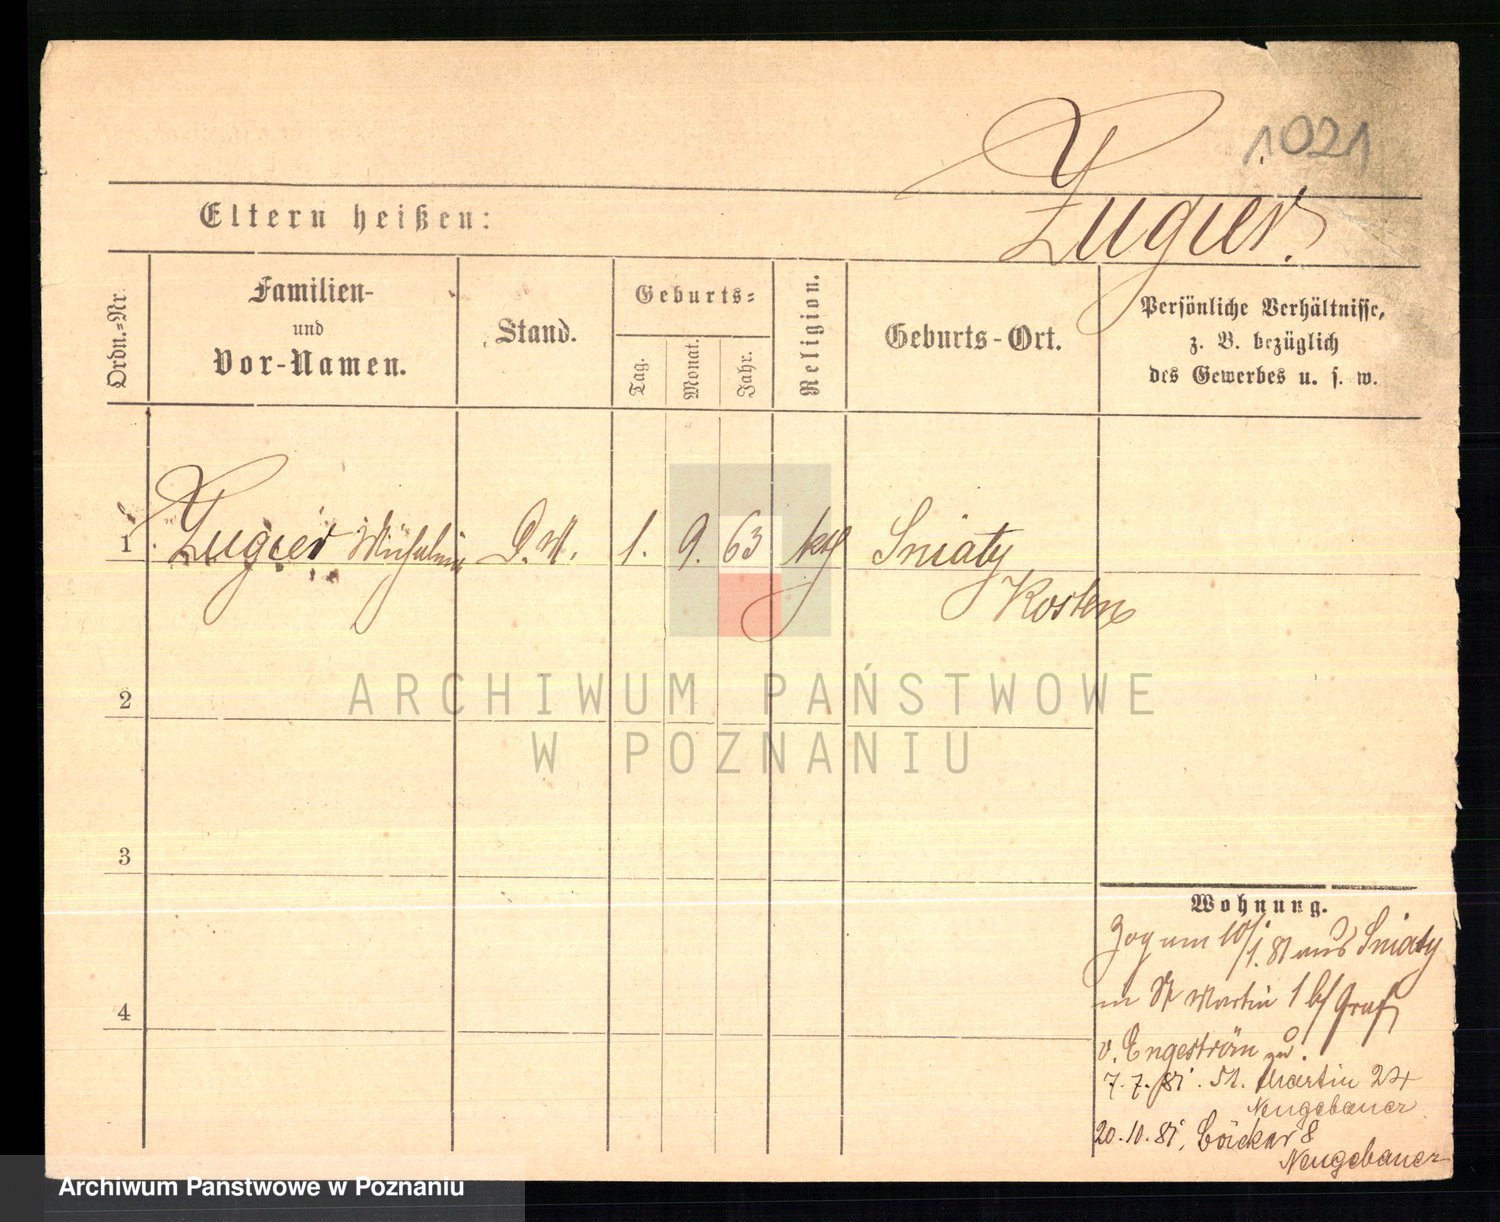 1021
Zugier.
Eltern heißen:
Ordn.=Nr.
Familien-
und
Vor-Namen.
Stand.
Geburts=
Tag.
Monat.
Jahr.
Religion.
Geburts-Ort.
Persönliche Verhältnisse,
z. B. bezüglich
des Gewerbes u. s. w.
1 Zugier D. M. 1. 9. 63 kth Sniaty
Kosten
2
3
4
ARCHIWUM PAŃSTWOWE
W POZNANIU
Wohnung.
Zog am 10/1. 81 aus Sniaty
St Martin 1 b/ Graf
v. Engeström zu.
7. 7. 81. St. Martin 24
Neugebauer
20. 10. 81. Bäcker 8
Neugebauer
Archiwum Państwowe w Poznaniu